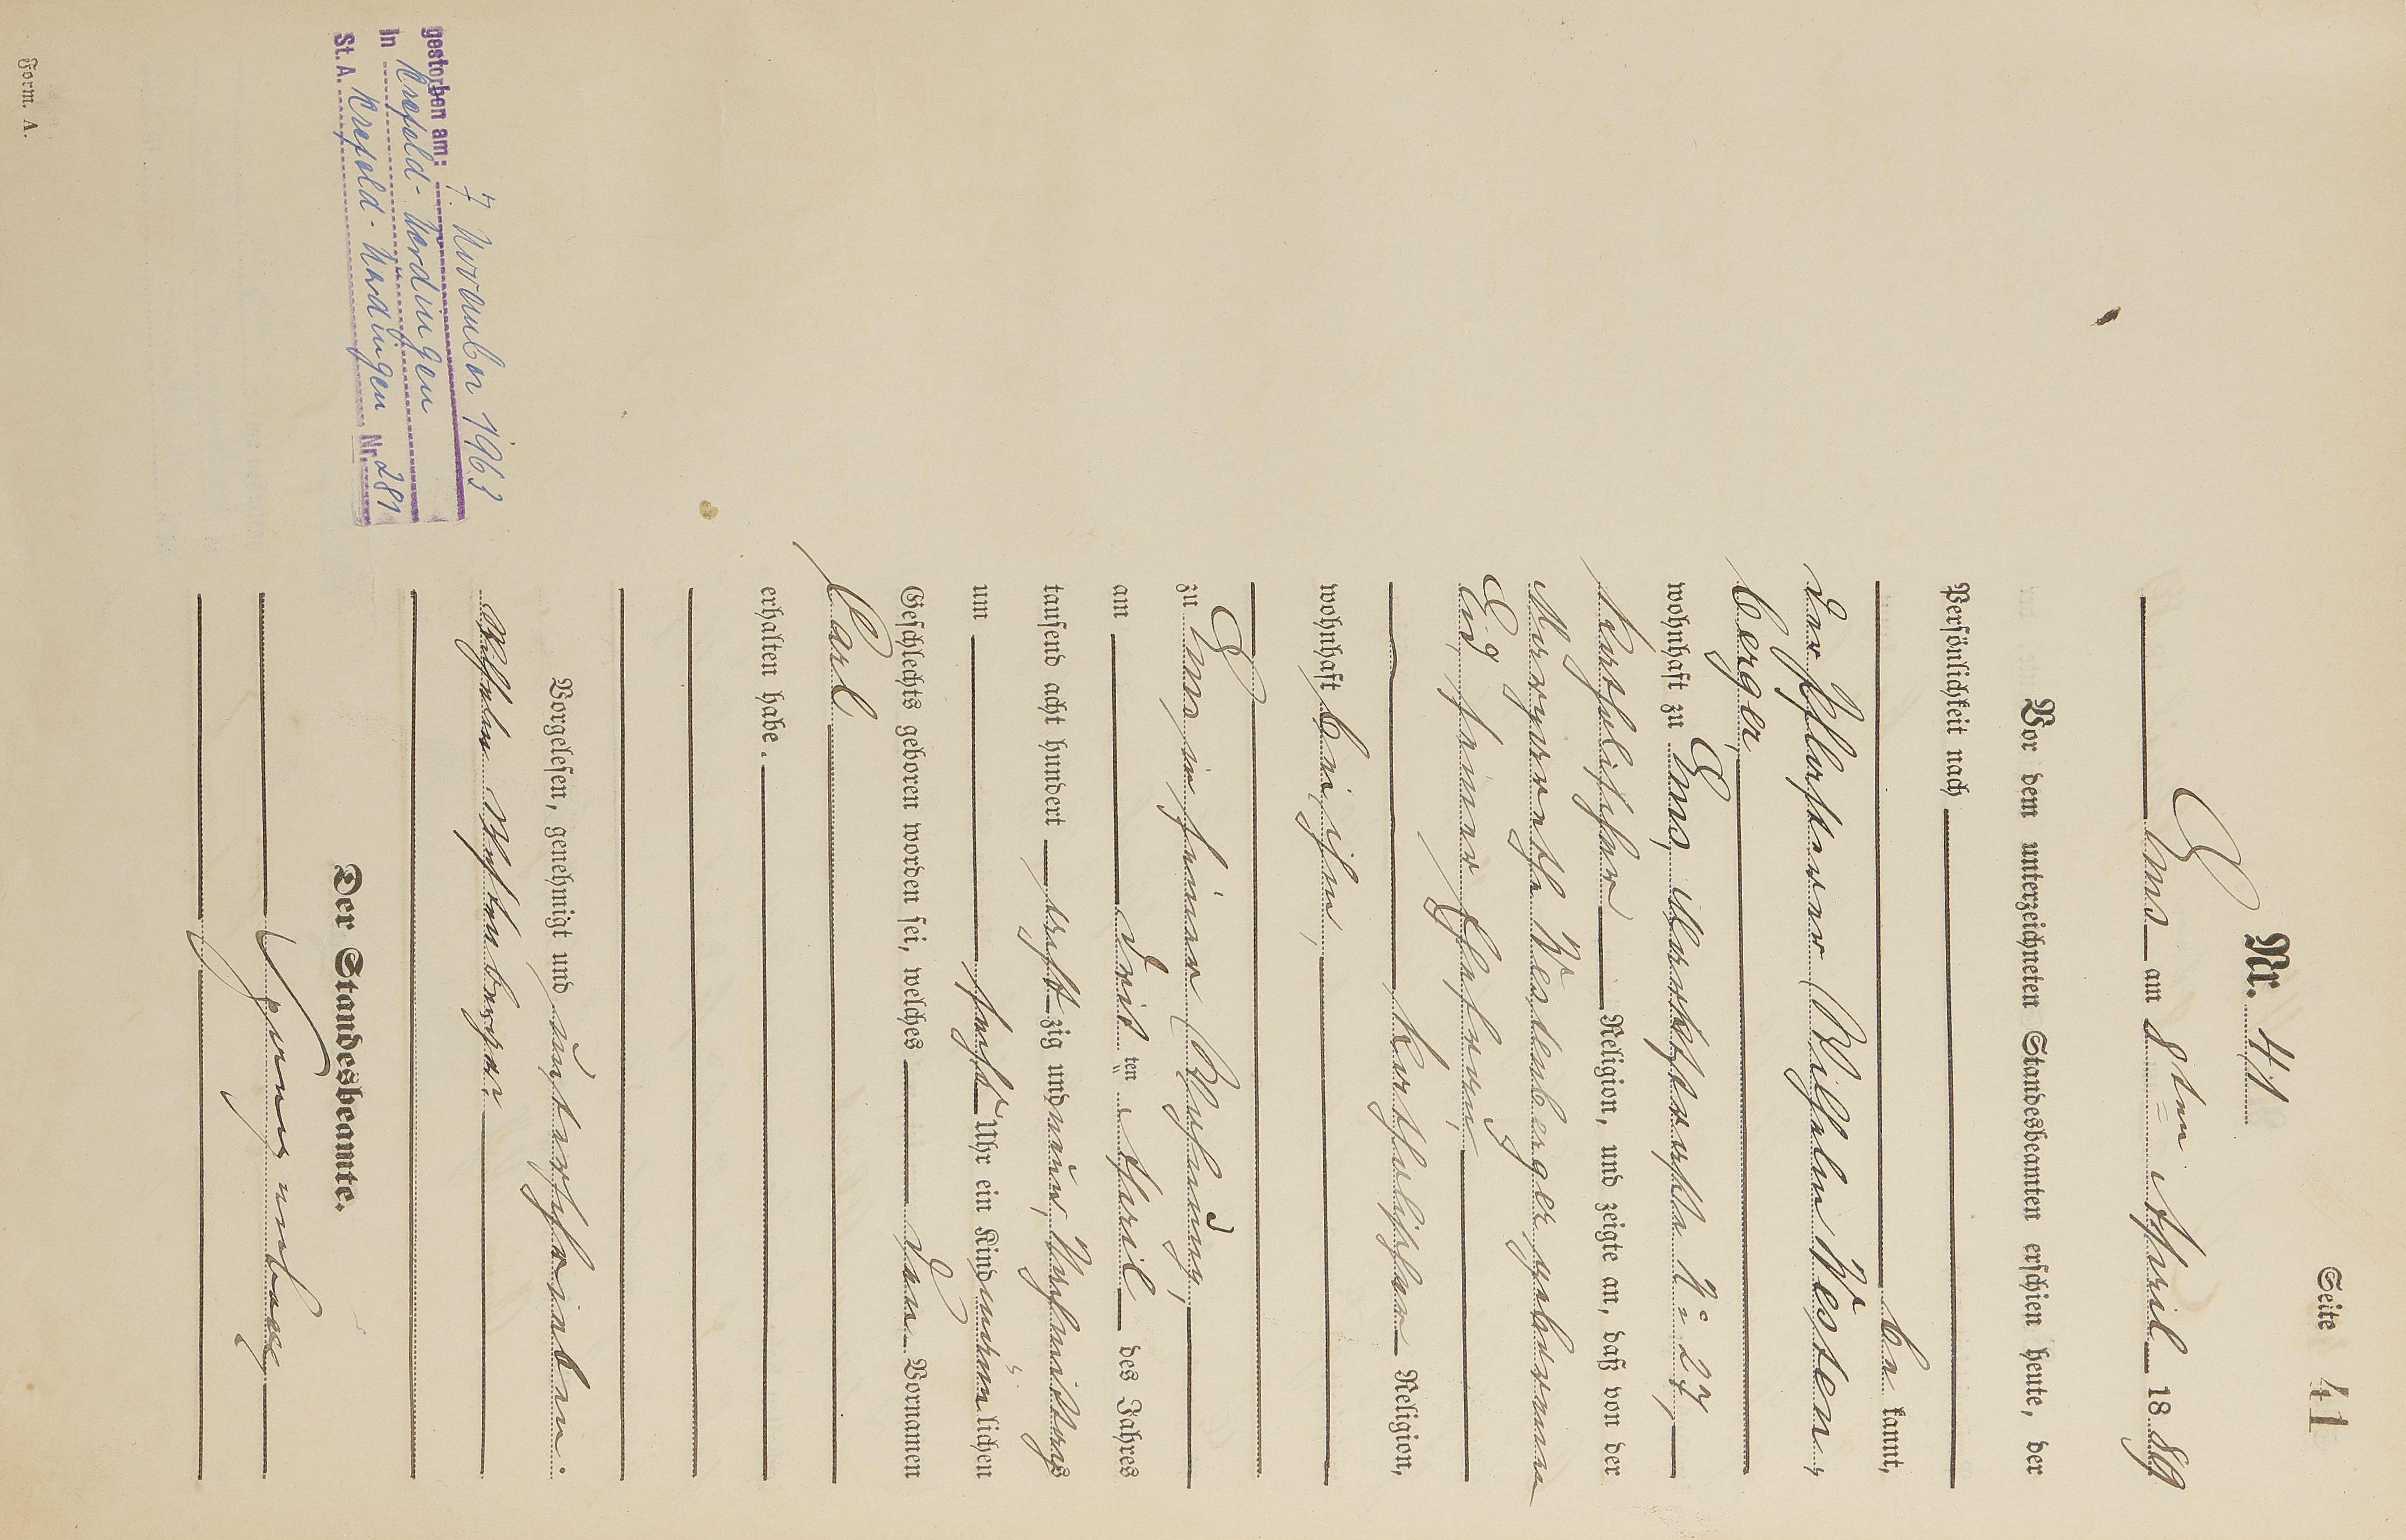 Seite 41
Nr. 41
Ems am 8ten April 1889
Vor dem unterzeichneten Standesbeamten erschien heute, der
Persönlichkeit nach
be kannt,
der Pflasterer Wilhelm Westen,
berger,
wohnhaft zu Ems, Marktstraße No 27,
katholischer Religion, und zeigte an, daß von der
Margarethe Westenberger geborenen
Eid, seiner Ehefrau,
katholischer Religion,
wohnhaft bei ihm,
zu Ems in seiner Wohnung,
am drit ten April des Jahres
tausend acht hundert acht zig und neun, Nachmittags
um fünf Uhr ein Kind männ lichen
Geschlechts geboren worden sei, welches den Vornamen
Carl
erhalten habe.
Vorgelesen, genehmigt und unterschrieben.
Wilhelm Westenberger
Der Standesbeamte.
gestorben am: 7. November 1963
in Krefeld-Uerdingen
St. A. Krefeld-Uerdingen Nr. 281
Form. A.